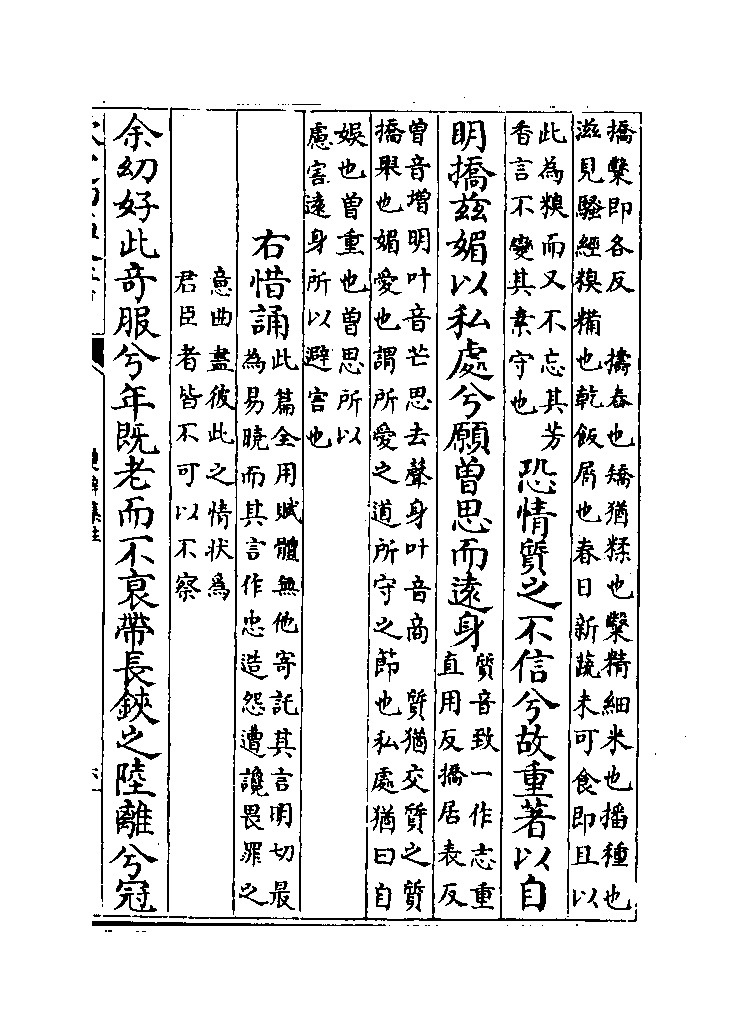 撟糳即各反　擣舂也矯猶糅也糳精細米也播種也
滋見騷經糗糒也乾飯屑也春日新蔬未可食即且以
此為糗而又不忘其芳
香言不變其素守也
恐情質之不信兮故重著以自
明撟茲媚以私處兮願曾思而遠身
質音致一作志重
直用反撟居表反
曾音增明叶音芒思去聲身叶音商　質猶交質之質
撟舉也媚愛也謂所愛之道所守之節也私處猶曰自
娛也曾重也曾思所以
慮害遠身所以避害也
右惜誦
此篇全用賦體無他寄託其言明切最
為易曉而其言作忠造怨遭讒畏罪之
意曲盡彼此之情狀為
君臣者皆不可以不察
余幼好此奇服兮年既老而不衰帶長鋏之陸離兮冠